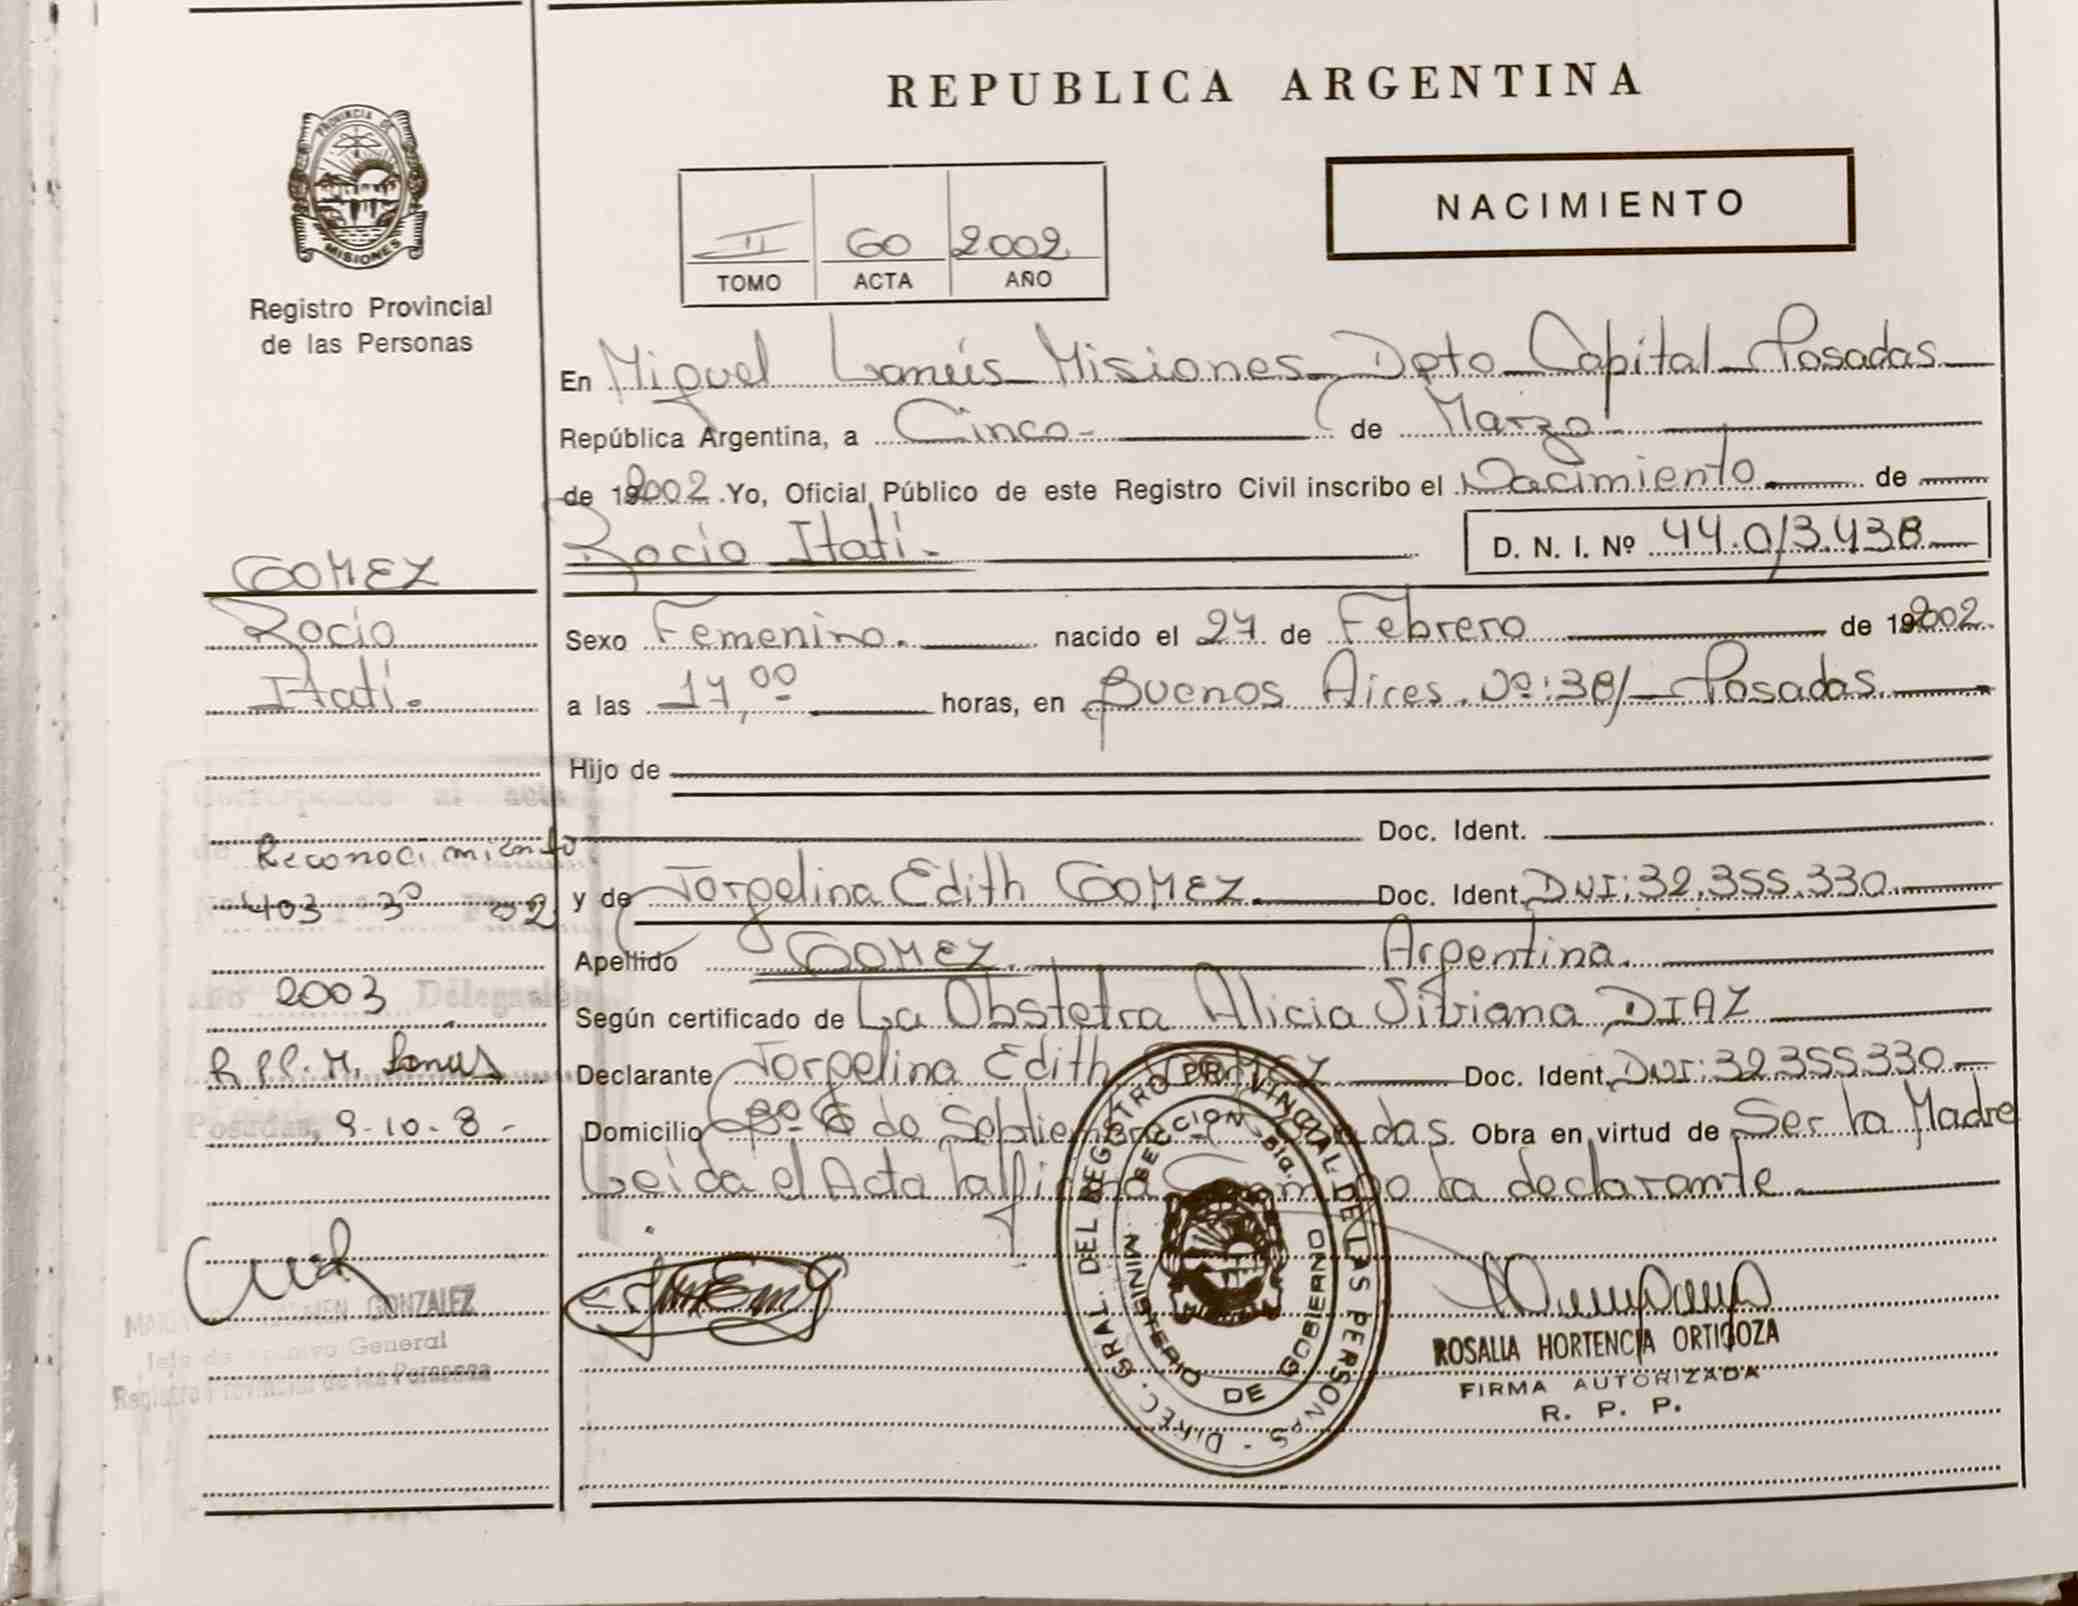 REPUBLICA ARGENTINA
PROVINCIA DE MISIONES
Registro Provincial
de las Personas
II 60 2002
TOMO ACTA AÑO
NACIMIENTO
En Miguel Lanús Misiones Dpto Capital Posadas
República Argentina, a Cinco de Marzo
de 2002 Yo, Oficial Público de este Registro Civil inscribo el Nacimiento de
Rocío Itatí.
D. N. I. Nº 44.013.438
Sexo Femenino. nacido el 27 de Febrero de 2002
a las 17,00 horas, en Buenos Aires Nº:381 Posadas
Hijo de
Doc. Ident.
y de Jorgelina Edith GOMEZ Doc. Ident. DNI:32.355.330
Apellido GOMEZ. Argentina.
Según certificado de La Obstetra Alicia Viviana DIAZ
Declarante Jorgelina Edith GOMEZ Doc. Ident. DNI:32.355.330
Domicilio de Septiembre Posadas. Obra en virtud de Ser la Madre
Leída el Acta la firma Conmigo la declarante
GOMEZ
Rocío
Itatí.
Corresponde al acta
de Reconocimiento
403 3º
Año 2003 Delegación
R.P.P. M. Lanus
Posadas, 9-10-8-
GONZALEZ
Jefe de Archivo General
Registro Provincial de las Personas
DIREC. GRAL. DEL REGISTRO PROVINCIAL DE LAS PERSONAS
MINISTERIO DE GOBIERNO
ROSALIA HORTENCIA ORTIGOZA
FIRMA AUTORIZADA
R. P. P.